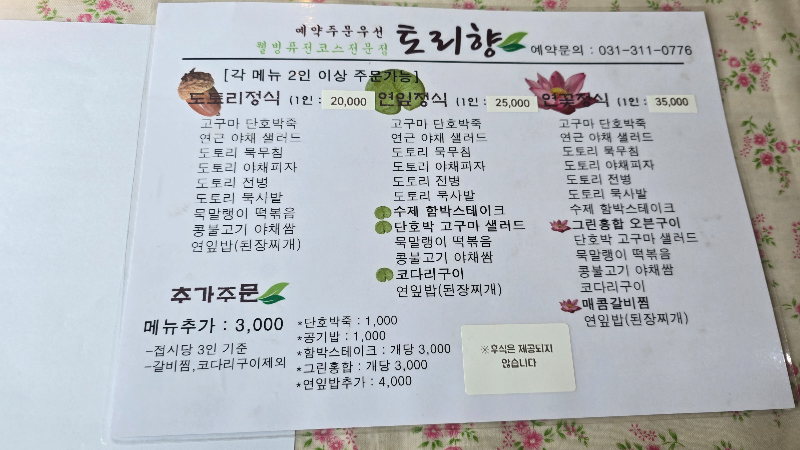 예약주문우선
웰빙류전코스전문점
토리향
예약문의 : 031-311-0776
[각 메뉴 2인 이상 주문가능]
도토리정식 (1인 : 20,000
고구마 단호박죽
연근 야채 샐러드
도토리 묵무침
도토리 야채피자
도토리 전병
도토리 묵사발
묵말랭이 떡볶음
콩불고기 야채쌈
연잎밥(된장찌개)
연잎정식 (1인 : 25,000
고구마 단호박죽
연근 야채 샐러드
도토리 묵무침
도토리 야채피자
도토리 전병
도토리 묵사발
수제 함박스테이크
단호박 고구마 샐러드
묵말랭이 떡볶음
콩불고기 야채쌈
코다리구이
연잎밥(된장찌개)
연꽃정식 (1인 : 35,000
고구마 단호박죽
연근 야채 샐러드
도토리 묵무침
도토리 야채피자
도토리 전병
도토리 묵사발
수제 함박스테이크
그린홍합 오븐구이
단호박 고구마 샐러드
묵말랭이 떡볶음
콩불고기 야채쌈
코다리구이
매콤갈비찜
연잎밥(된장찌개)
추가주문
메뉴추가 : 3,000
-접시당 3인 기준
-갈비찜,코다리구이제외
*단호박죽 : 1,000
*공기밥 : 1,000
*함박스테이크 : 개당 3,000
*그린홍합 : 개당 3,000
*연잎밥추가 : 4,000
※후식은 제공되지
않습니다